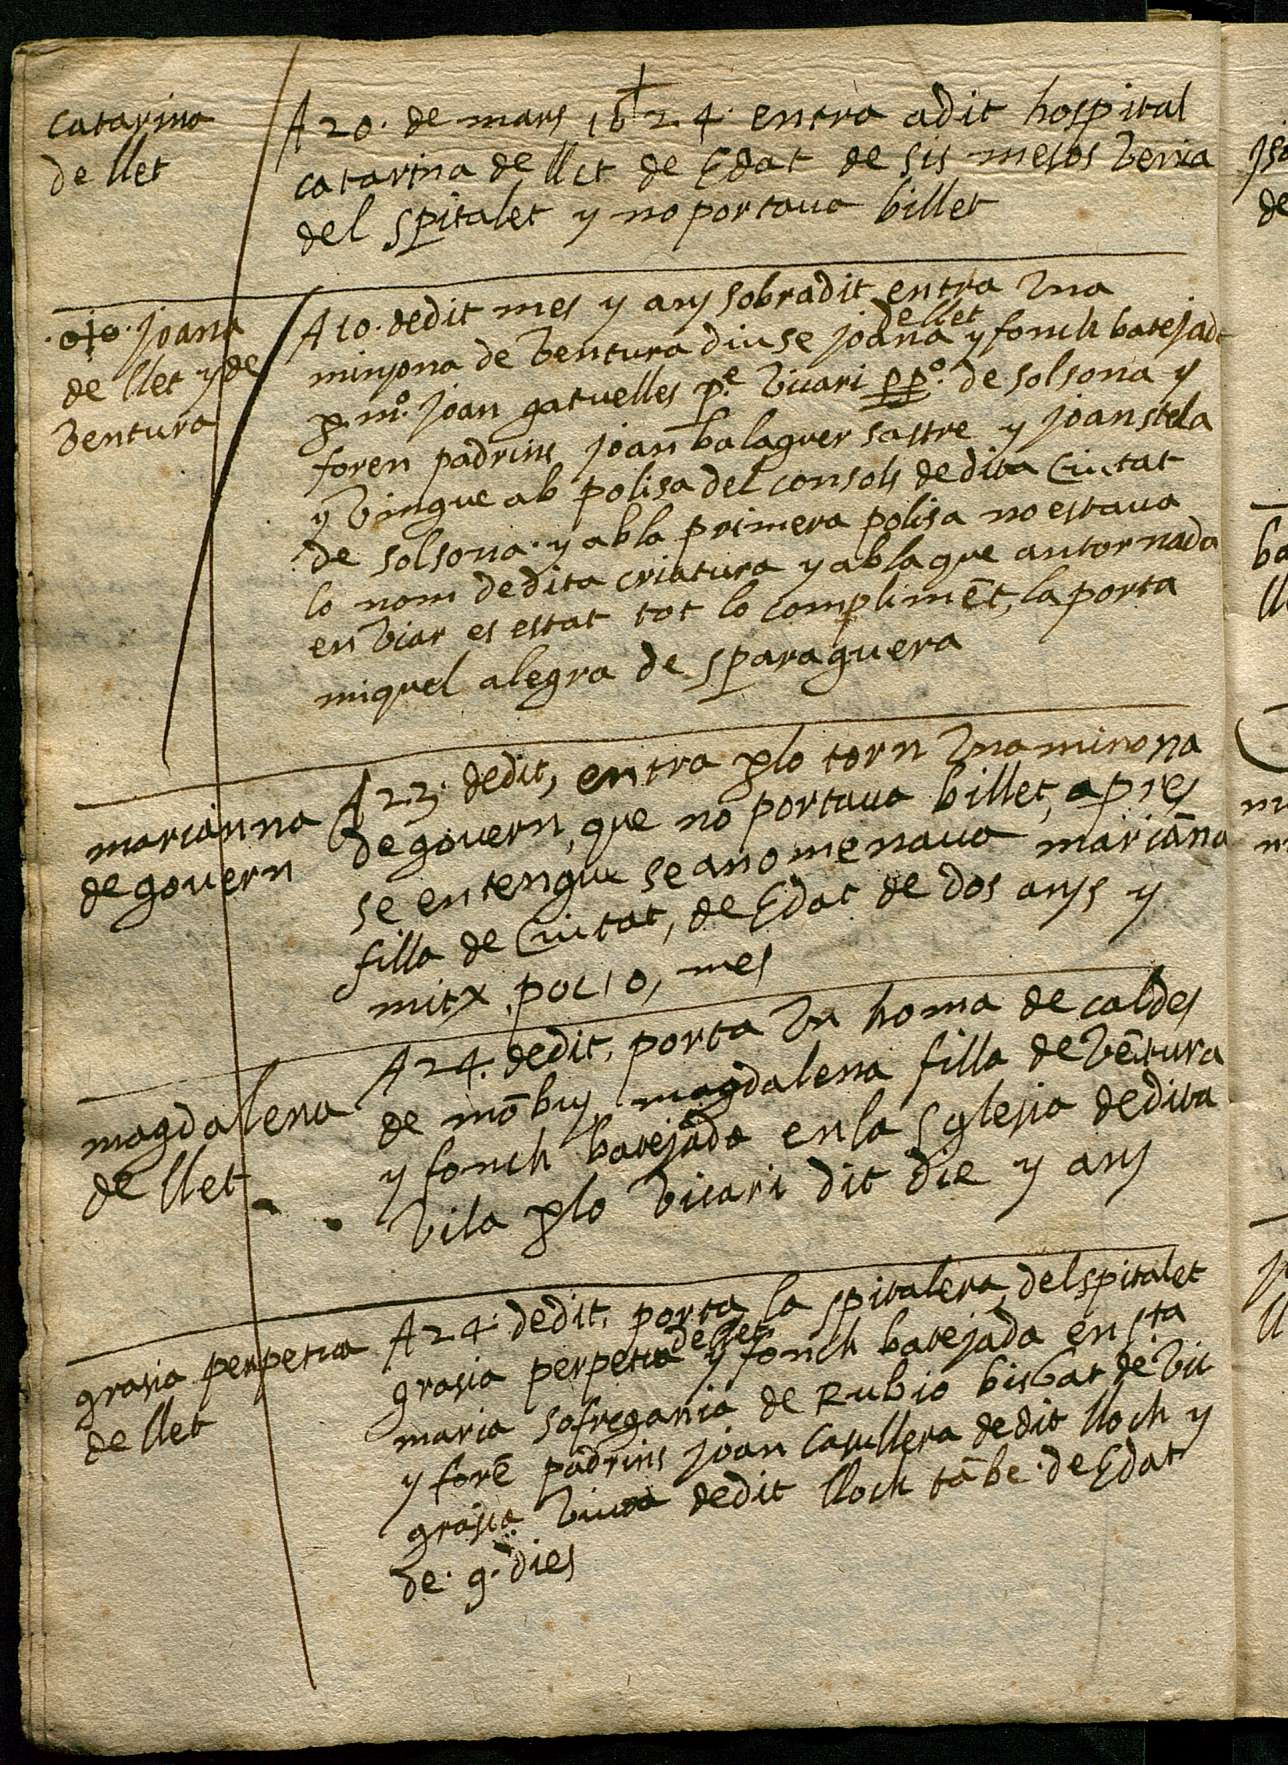 catarina
de llet
A 20. de mars 1624. entra a dit hospital
catarina de llet de Edat de sis mesos venia
del spitalet y no portava billet
.ojo. joana
de llet y de
ventura
A 10. de dit mes y any sobradit entra una
minyona de ventura diuse joana de llet y fonch batejada
p mº. joan gatuelles p.e vicari pp.º de solsona y
foren padrins joan balaguer sastre y joan stela
y vingue ab polisa del consols de dita Ciutat
de solsona. y ab la primera polisa no estava
lo nom de dita criatura y ab la que an tornada
enviar es estat tot lo complimēt, la porta
miquel alegra de sparaguera
marianna
de govern
A 23. de dit, entra p lo torn una minona
de govern, que no portava billet, apres
se entengue se anomenava mariāna
filla de Ciutat, de Edat de dos anys y
mitx poc, o, mes
magdalena
de llet
A 24. de dit, porta un homa de caldes
de mōbuy magdalena filla de vētura
y fonch batejada en la Sglesia de dita
vila p lo vicari dit die y any
grasia perpetua
de llet
A 24. de dit, porta la spitalera del spitalet
grasia perpetua de llet y fonch batejada en sta
maria sofregania de Rubio bisbat de vic
y forē padrins joan Casullera de dit lloch y
grasia viuda de dit lloch tābe. de Edat
de. 9. dies